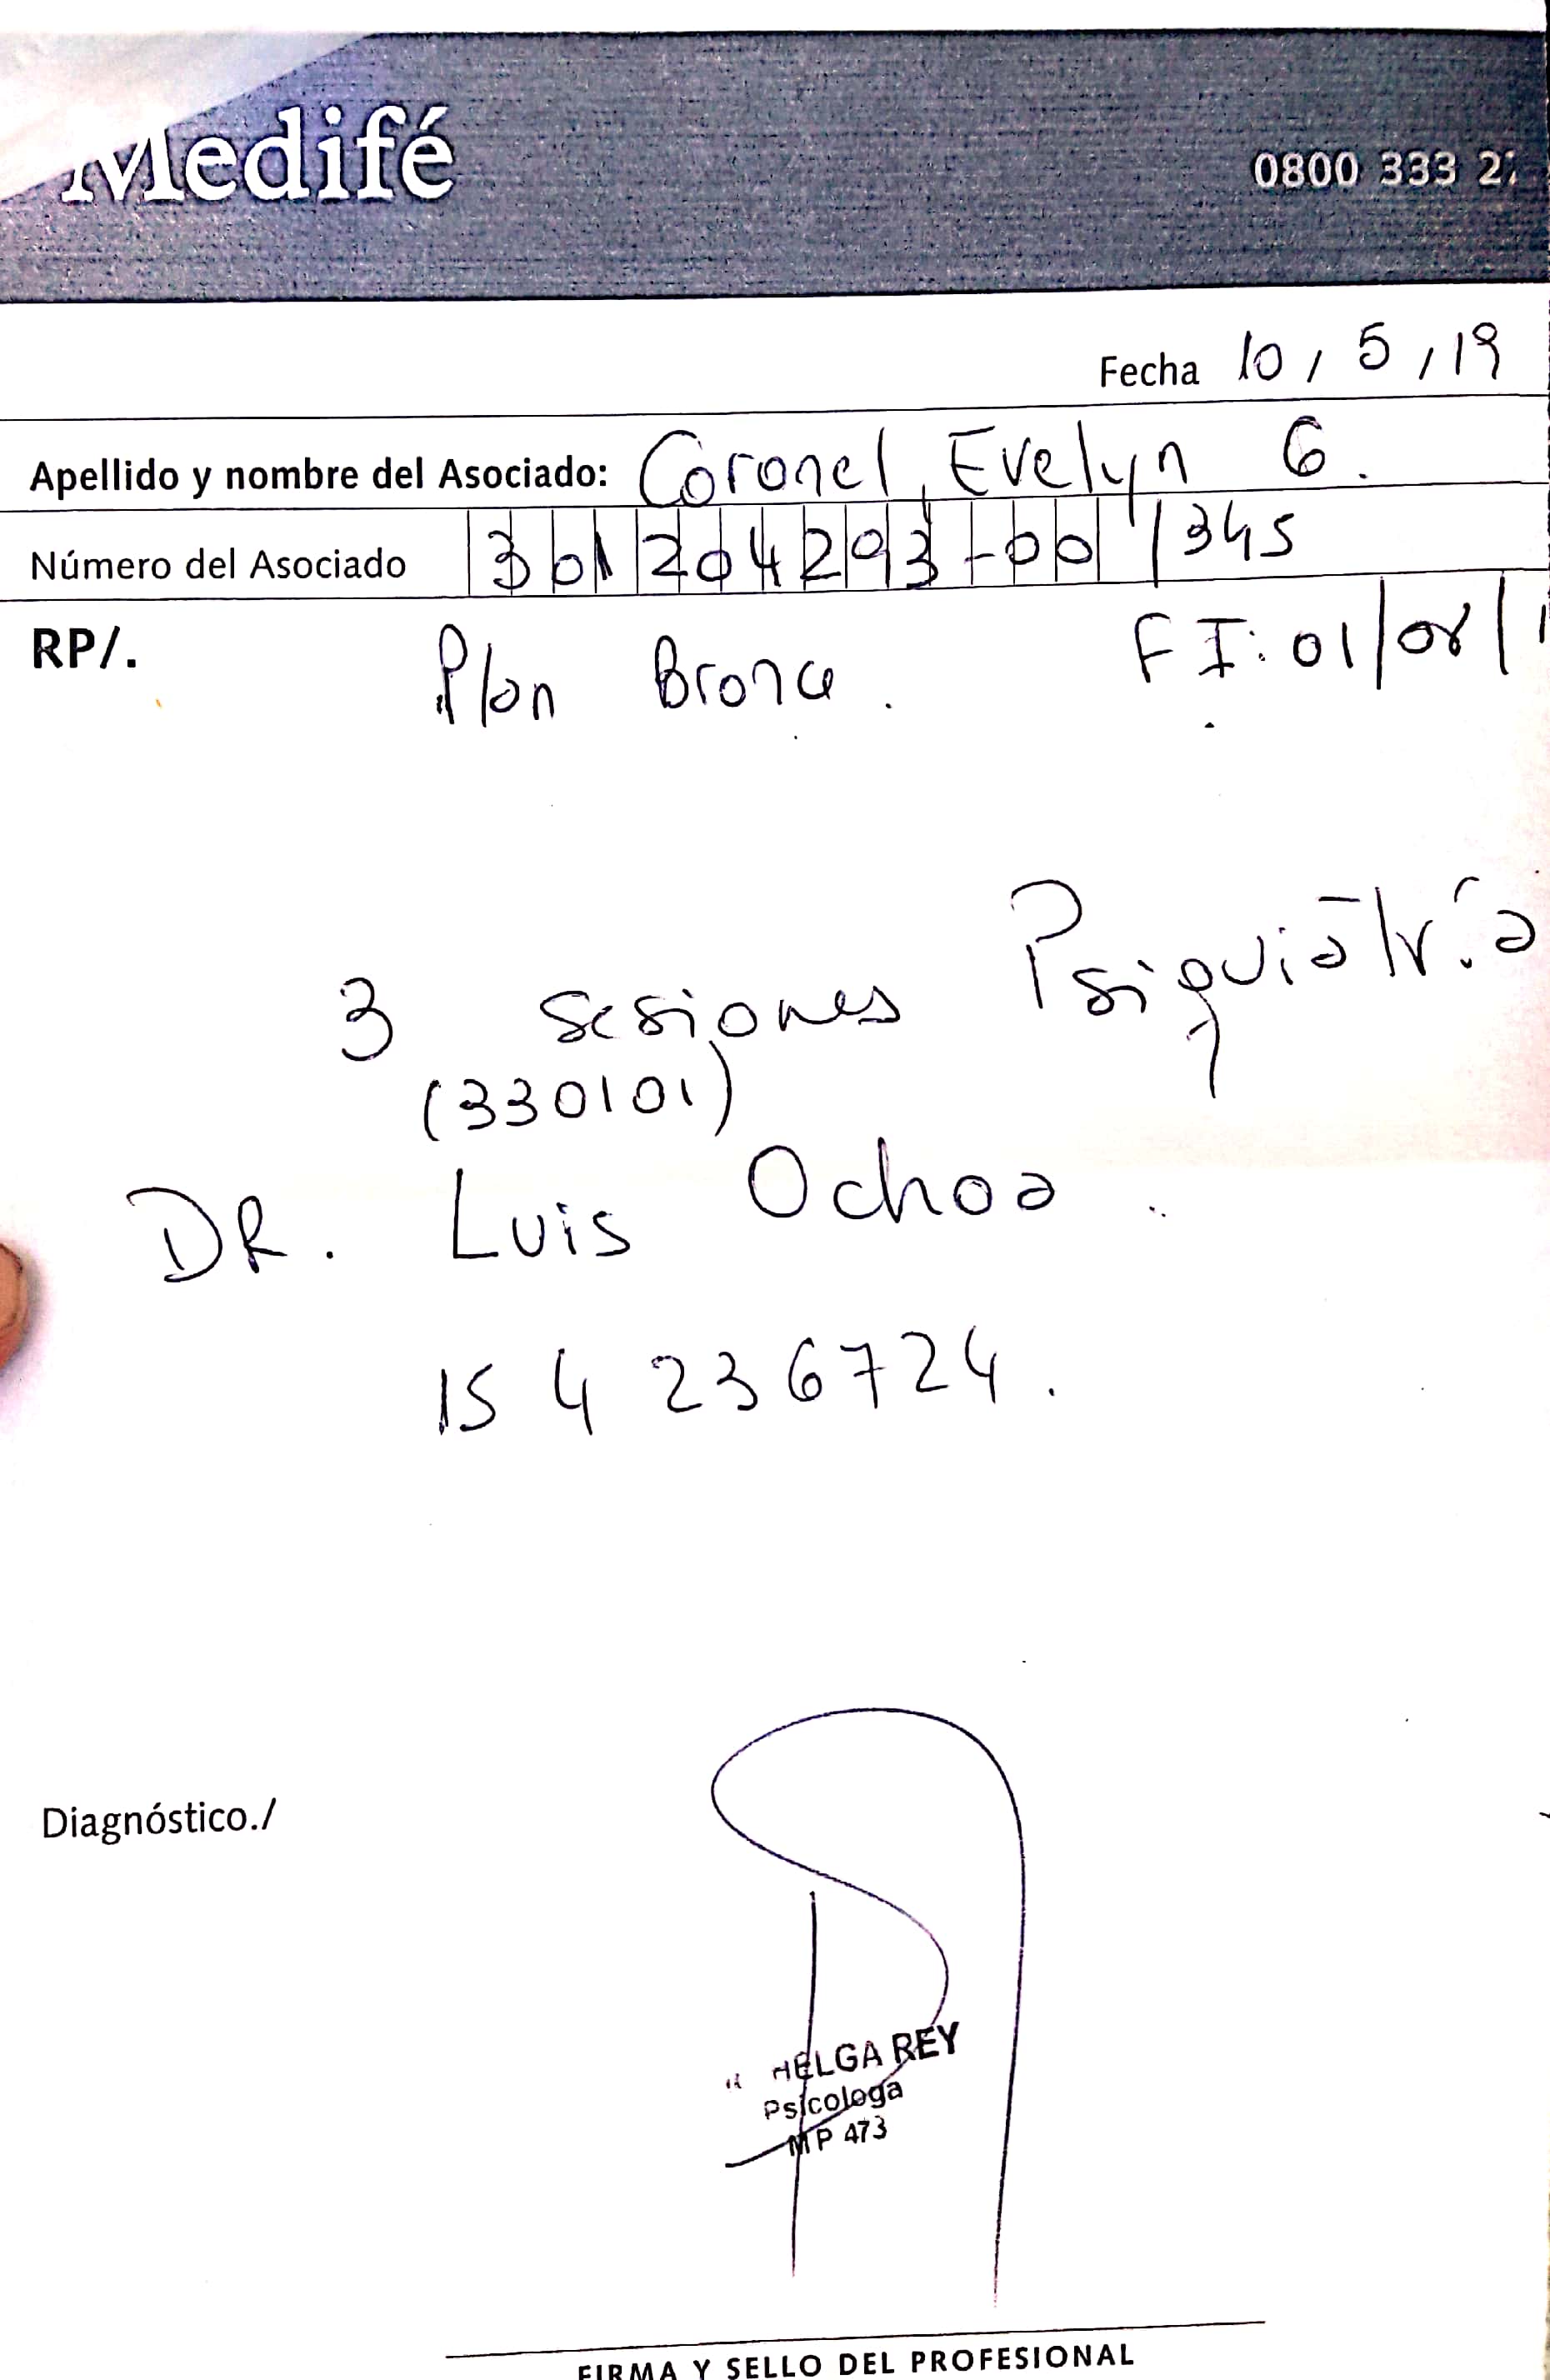 Medifé
0800 333 2
Fecha 10 / 5 / 19
Apellido y nombre del Asociado: Coronel, Evelyn G.
Número del Asociado 301204293-00 / 345
RP/.
Plan Bronce.
FI: 01/08/1
3 sesiones Psiquiatría
(330101)
DR. Luis Ochoa.
15 4 236724.
Diagnóstico./
HELGA REY
Psicologa
MP 473
FIRMA Y SELLO DEL PROFESIONAL